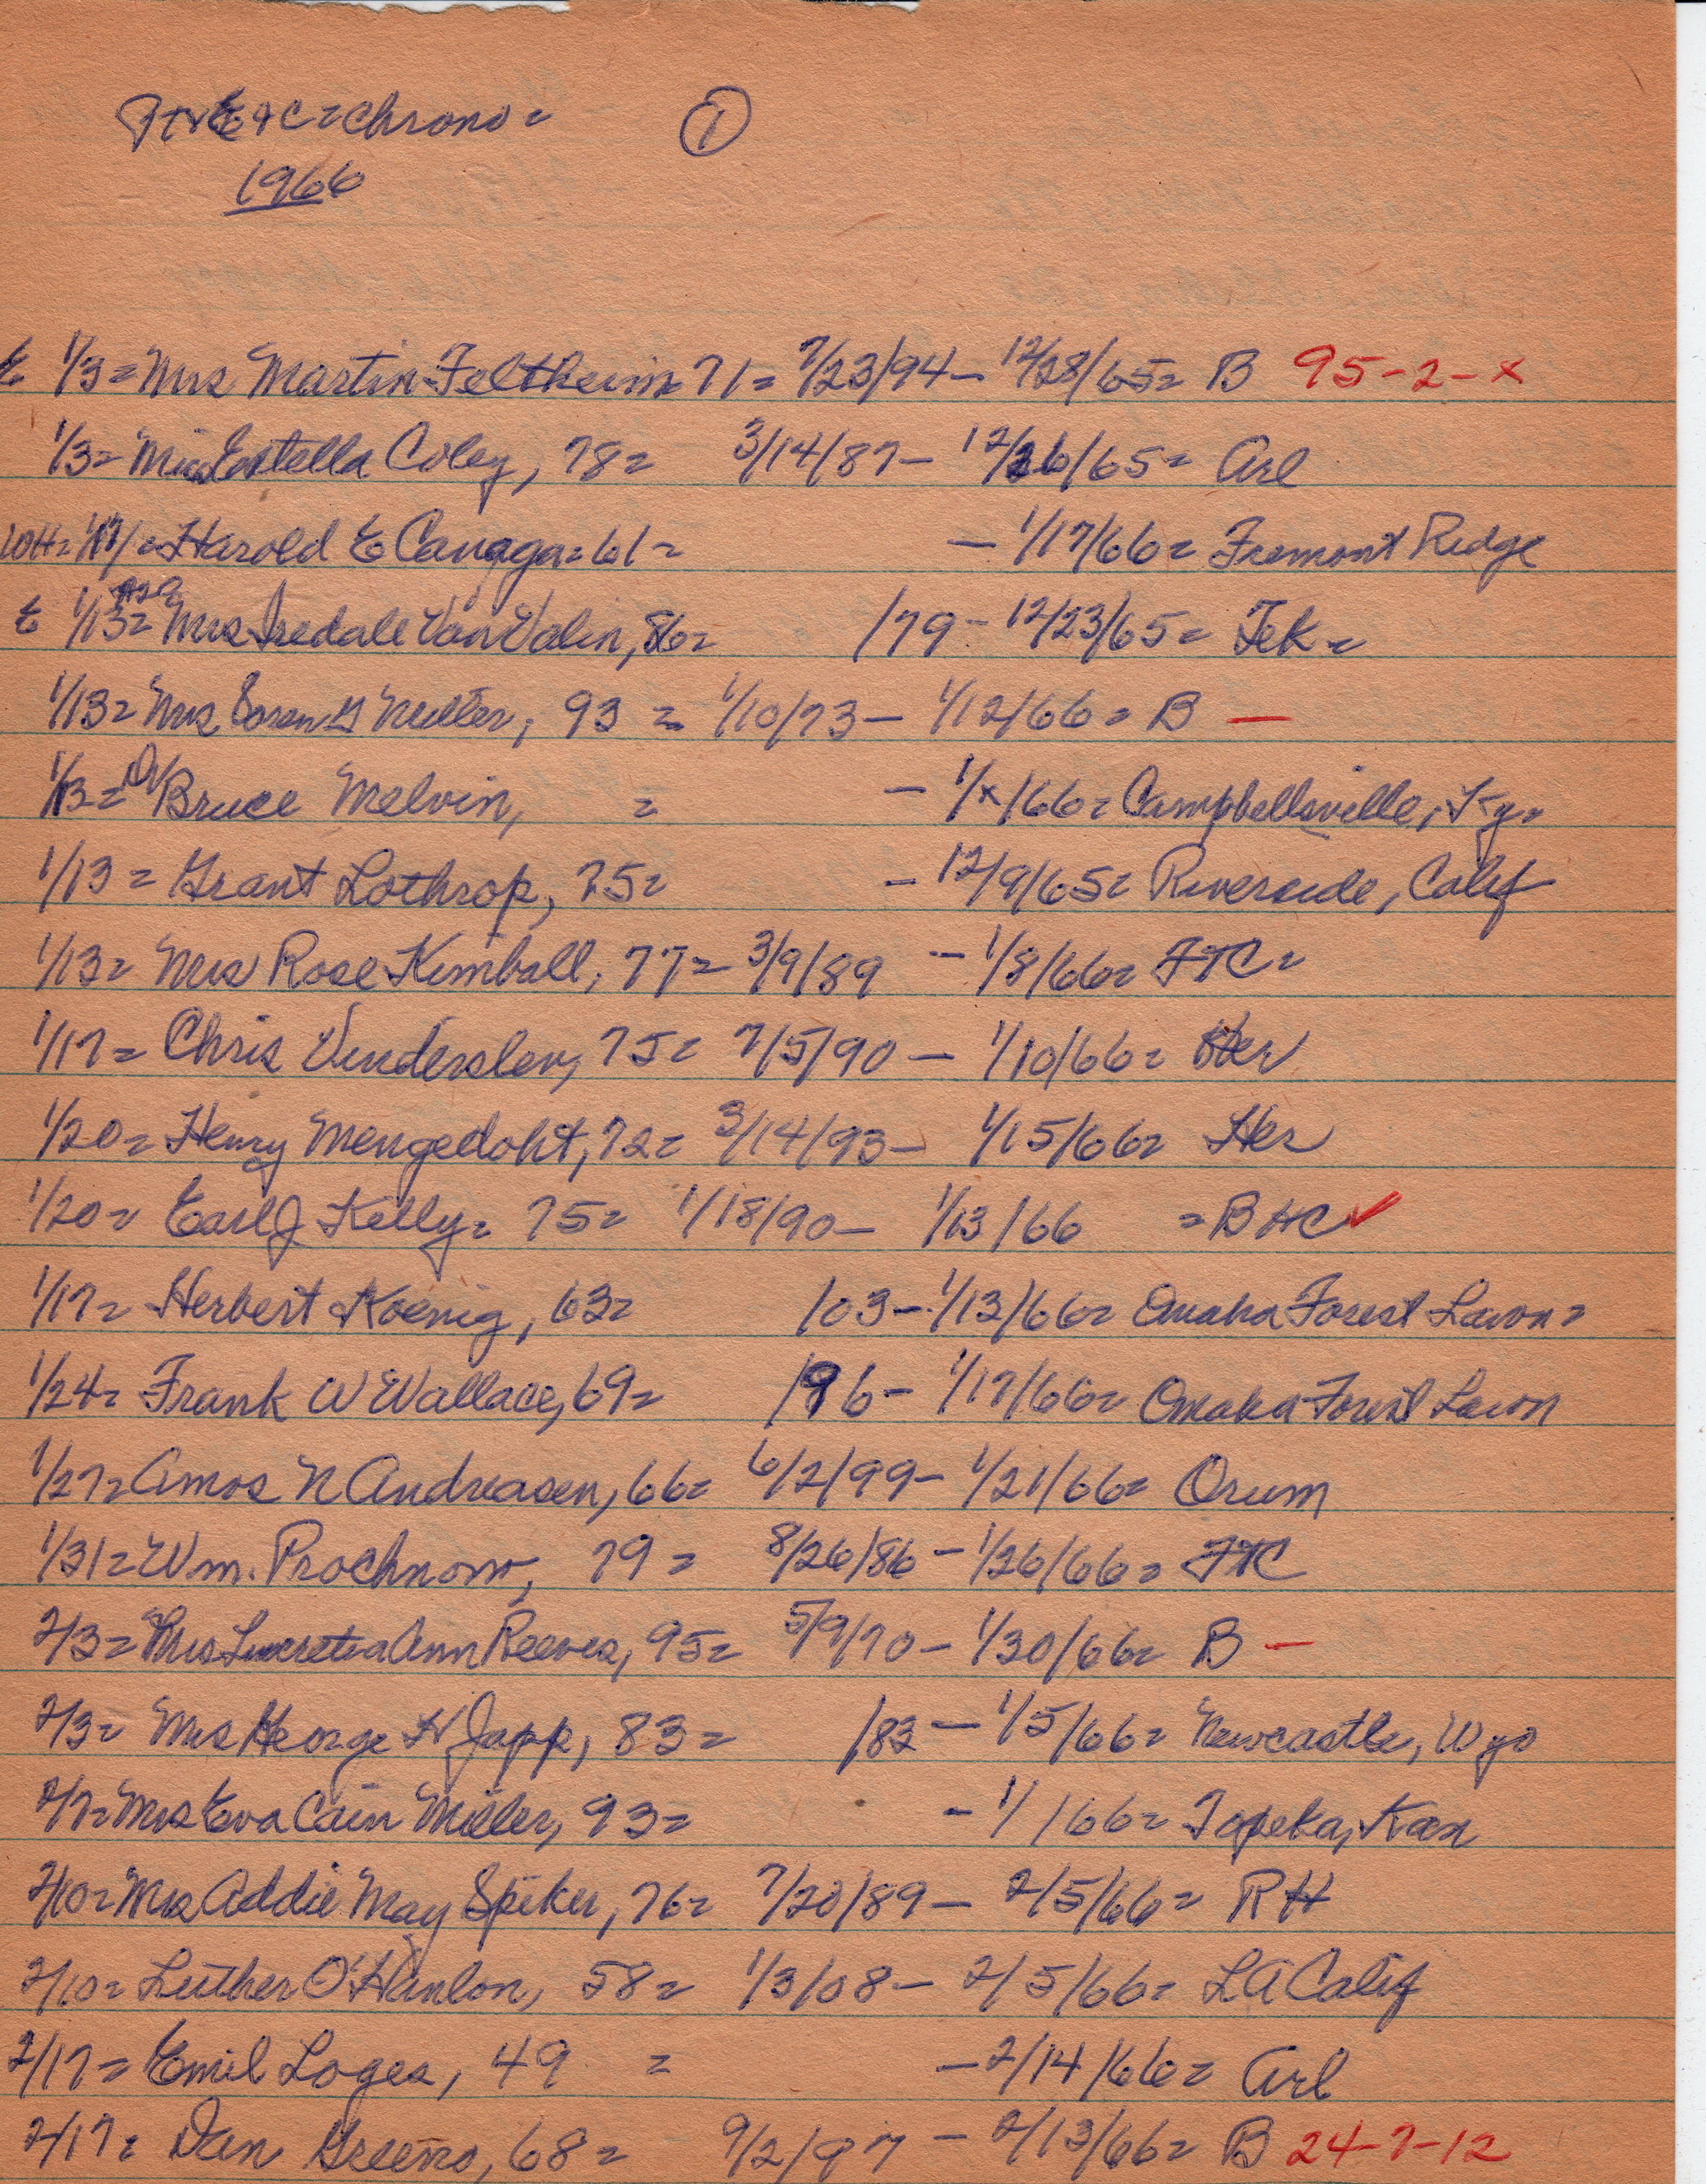 E & C = Chrono = ①
1966
E 1/3 = Mrs Martin Feltheim 71 = 7/23/94 - 12/28/65 = B 95-2-x
1/3 = Miss Estella Coley, 78 = 3/14/87 - 12/26/65 = Arl
WH = 1/17/ = Harold E Canaga = 61 = - 1/17/66 = Fremont Ridge
E 1/13 = Mrs Iredale VanValin, 86 = /79 - 12/23/65 = Tek =
1/13 = Mrs Soren G Miller, 93 = 1/10/73 - 1/12/66 = B -
1/13 = Dr Bruce Melvin, = - 1/x/66 = Campbellsville, Ky =
1/13 = Grant Lothrop, 75 = - 12/9/65 = Riverside, Calif
1/13 = Mrs Rose Kimball, 77 = 3/9/89 - 1/8/66 = FTC =
1/17 = Chris Vinderslev, 75 = 7/5/90 - 1/10/66 = Her
1/20 = Henry Mengedoht, 72 = 3/14/93 - 1/15/66 = Her
1/20 = Earl J Kelly = 75 = 1/18/90 - 1/13/66 = BHC ✓
1/17 = Herbert Koenig, 63 = /03 - 1/13/66 = Omaha Forest Lawn =
1/24 = Frank W Wallace, 69 = /96 - 1/17/66 = Omaha Forest Lawn
1/27 = Amos N Andreasen, 66 = 6/2/99 - 1/21/66 = Orum
1/31 = Wm. Prochnow, 79 = 8/26/86 - 1/26/66 = FTC
2/3 = Mrs Lucretia Ann Reeves, 95 = 5/9/70 - 1/30/66 = B -
2/3 = Mrs George H Japp, 83 = /82 - 1/5/66 = Newcastle, Wyo
2/7 = Mrs Eva Cain Miller, 93 = - 1/ /66 = Topeka, Kan
2/10 = Mrs Addie May Spiker, 76 = 7/20/89 - 2/5/66 = RH
2/10 = Luther O'Hanlon, 58 = 1/3/08 - 2/5/66 = LA Calif
2/17 = Emil Loges, 49 = - 2/14/66 = Arl
2/17 = Dan Greeno, 68 = 9/2/97 - 2/13/66 = B 24-7-12